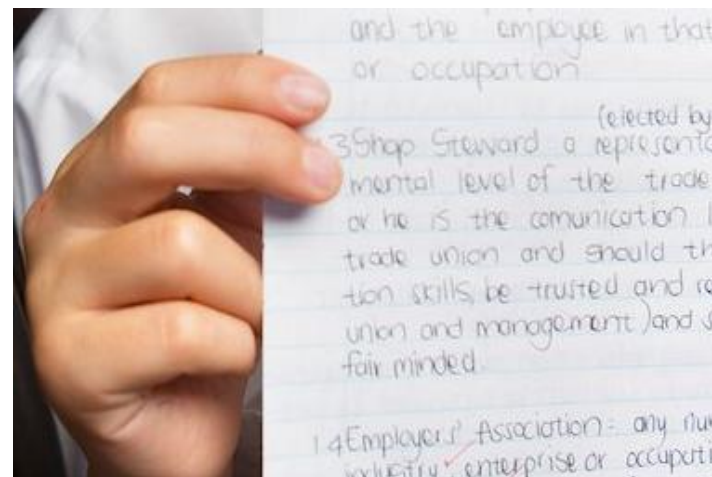 and the employee in that
or occupation
(elected by
3 Shop Steward a representa
mental level of the trade
or he is the comunication
trade union and should th
tion skills, be trusted and re
union and management) and s
fair minded.
14 Employers' Association: any nu
industry enterprise or occupati